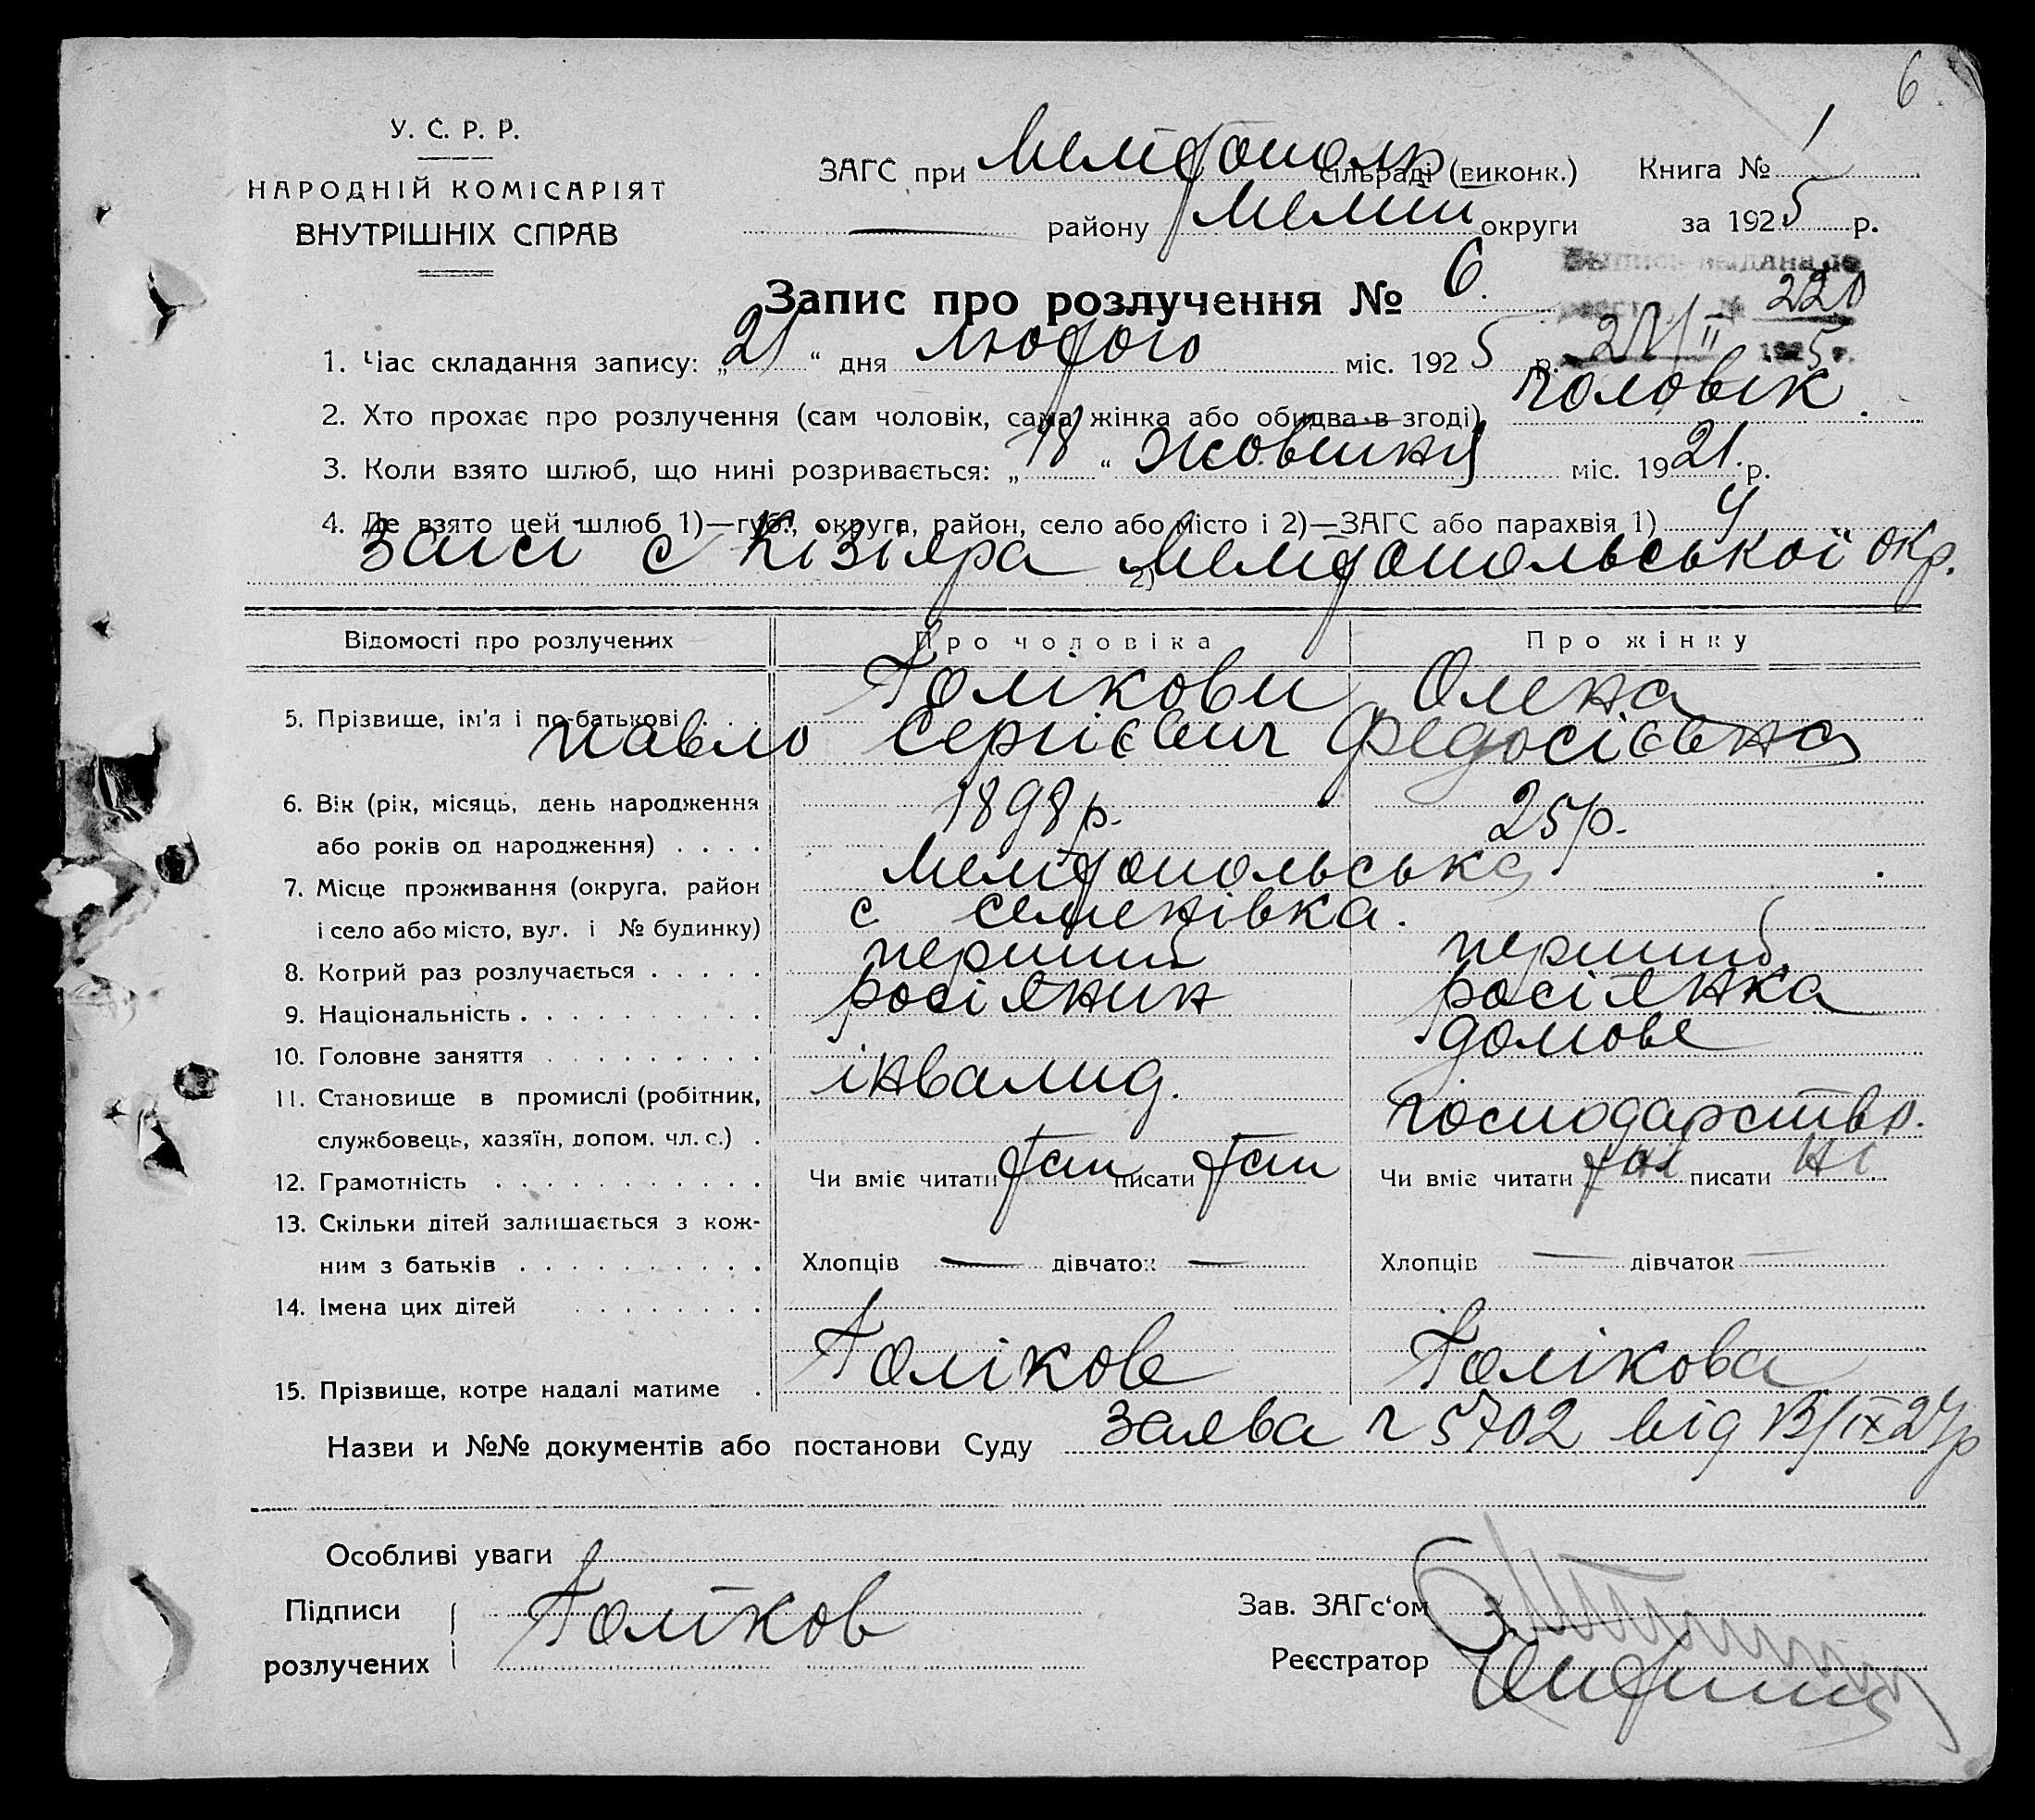 6
У. С. Р. Р.
НАРОДНІЙ КОМІСАРІЯТ
ВНУТРІШНІХ СПРАВ
ЗАГС при Мелітополь сільраді (виконк.) Книга № 1
району Меліт округи за 1925 р.
Запис про розлучення № 6.
Выпись выдана
№ 220
21/II 1925 г.
1. Час складання запису: „21“ дня лютого міс. 1925 р.
2. Хто прохає про розлучення (сам чоловік, сама жінка або обидва в згоді) чоловік.
3. Коли взято шлюб, що нині розривається: „18“ жовтня міс. 1921 р.
4. Де взято цей шлюб 1)—губ., округа, район, село або місто і 2)—ЗАГС або парахвія 1) У
загсі с Кізіяра 2) Мелітопольської окр.
Відомості про розлучених Про чоловіка Про жінку
5. Прізвище, ім'я і по-батькові Голікови Олена
Павло Сергієвич Федосієвна
6. Вік (рік, місяць, день народження 1898 р. 25 р.
або років од народження)
7. Місце проживання (округа, район Мелітопольська
і село або місто, вул. і № будинку) с Семенівка.
8. Котрий раз розлучається перший перший
9. Національність росіянин росіянка
10. Головне заняття інвалид. домове
11. Становище в промислі (робітник, господарство.
службовець, хазяїн, допом. чл. с.)
12. Грамотність Чи вміє читати так писати так Чи вміє читати ні писати ні
13. Скільки дітей залишається з кож-
ним з батьків Хлопців — дівчаток — Хлопців — дівчаток —
14. Імена цих дітей
15. Прізвище, котре надалі матиме Голіков Голікова
Назви и №№ документів або постанови Суду заява ч 5702 від
Особливі уваги
Підписи Голіков Зав. ЗАГс‘ом
розлучених Реєстратор